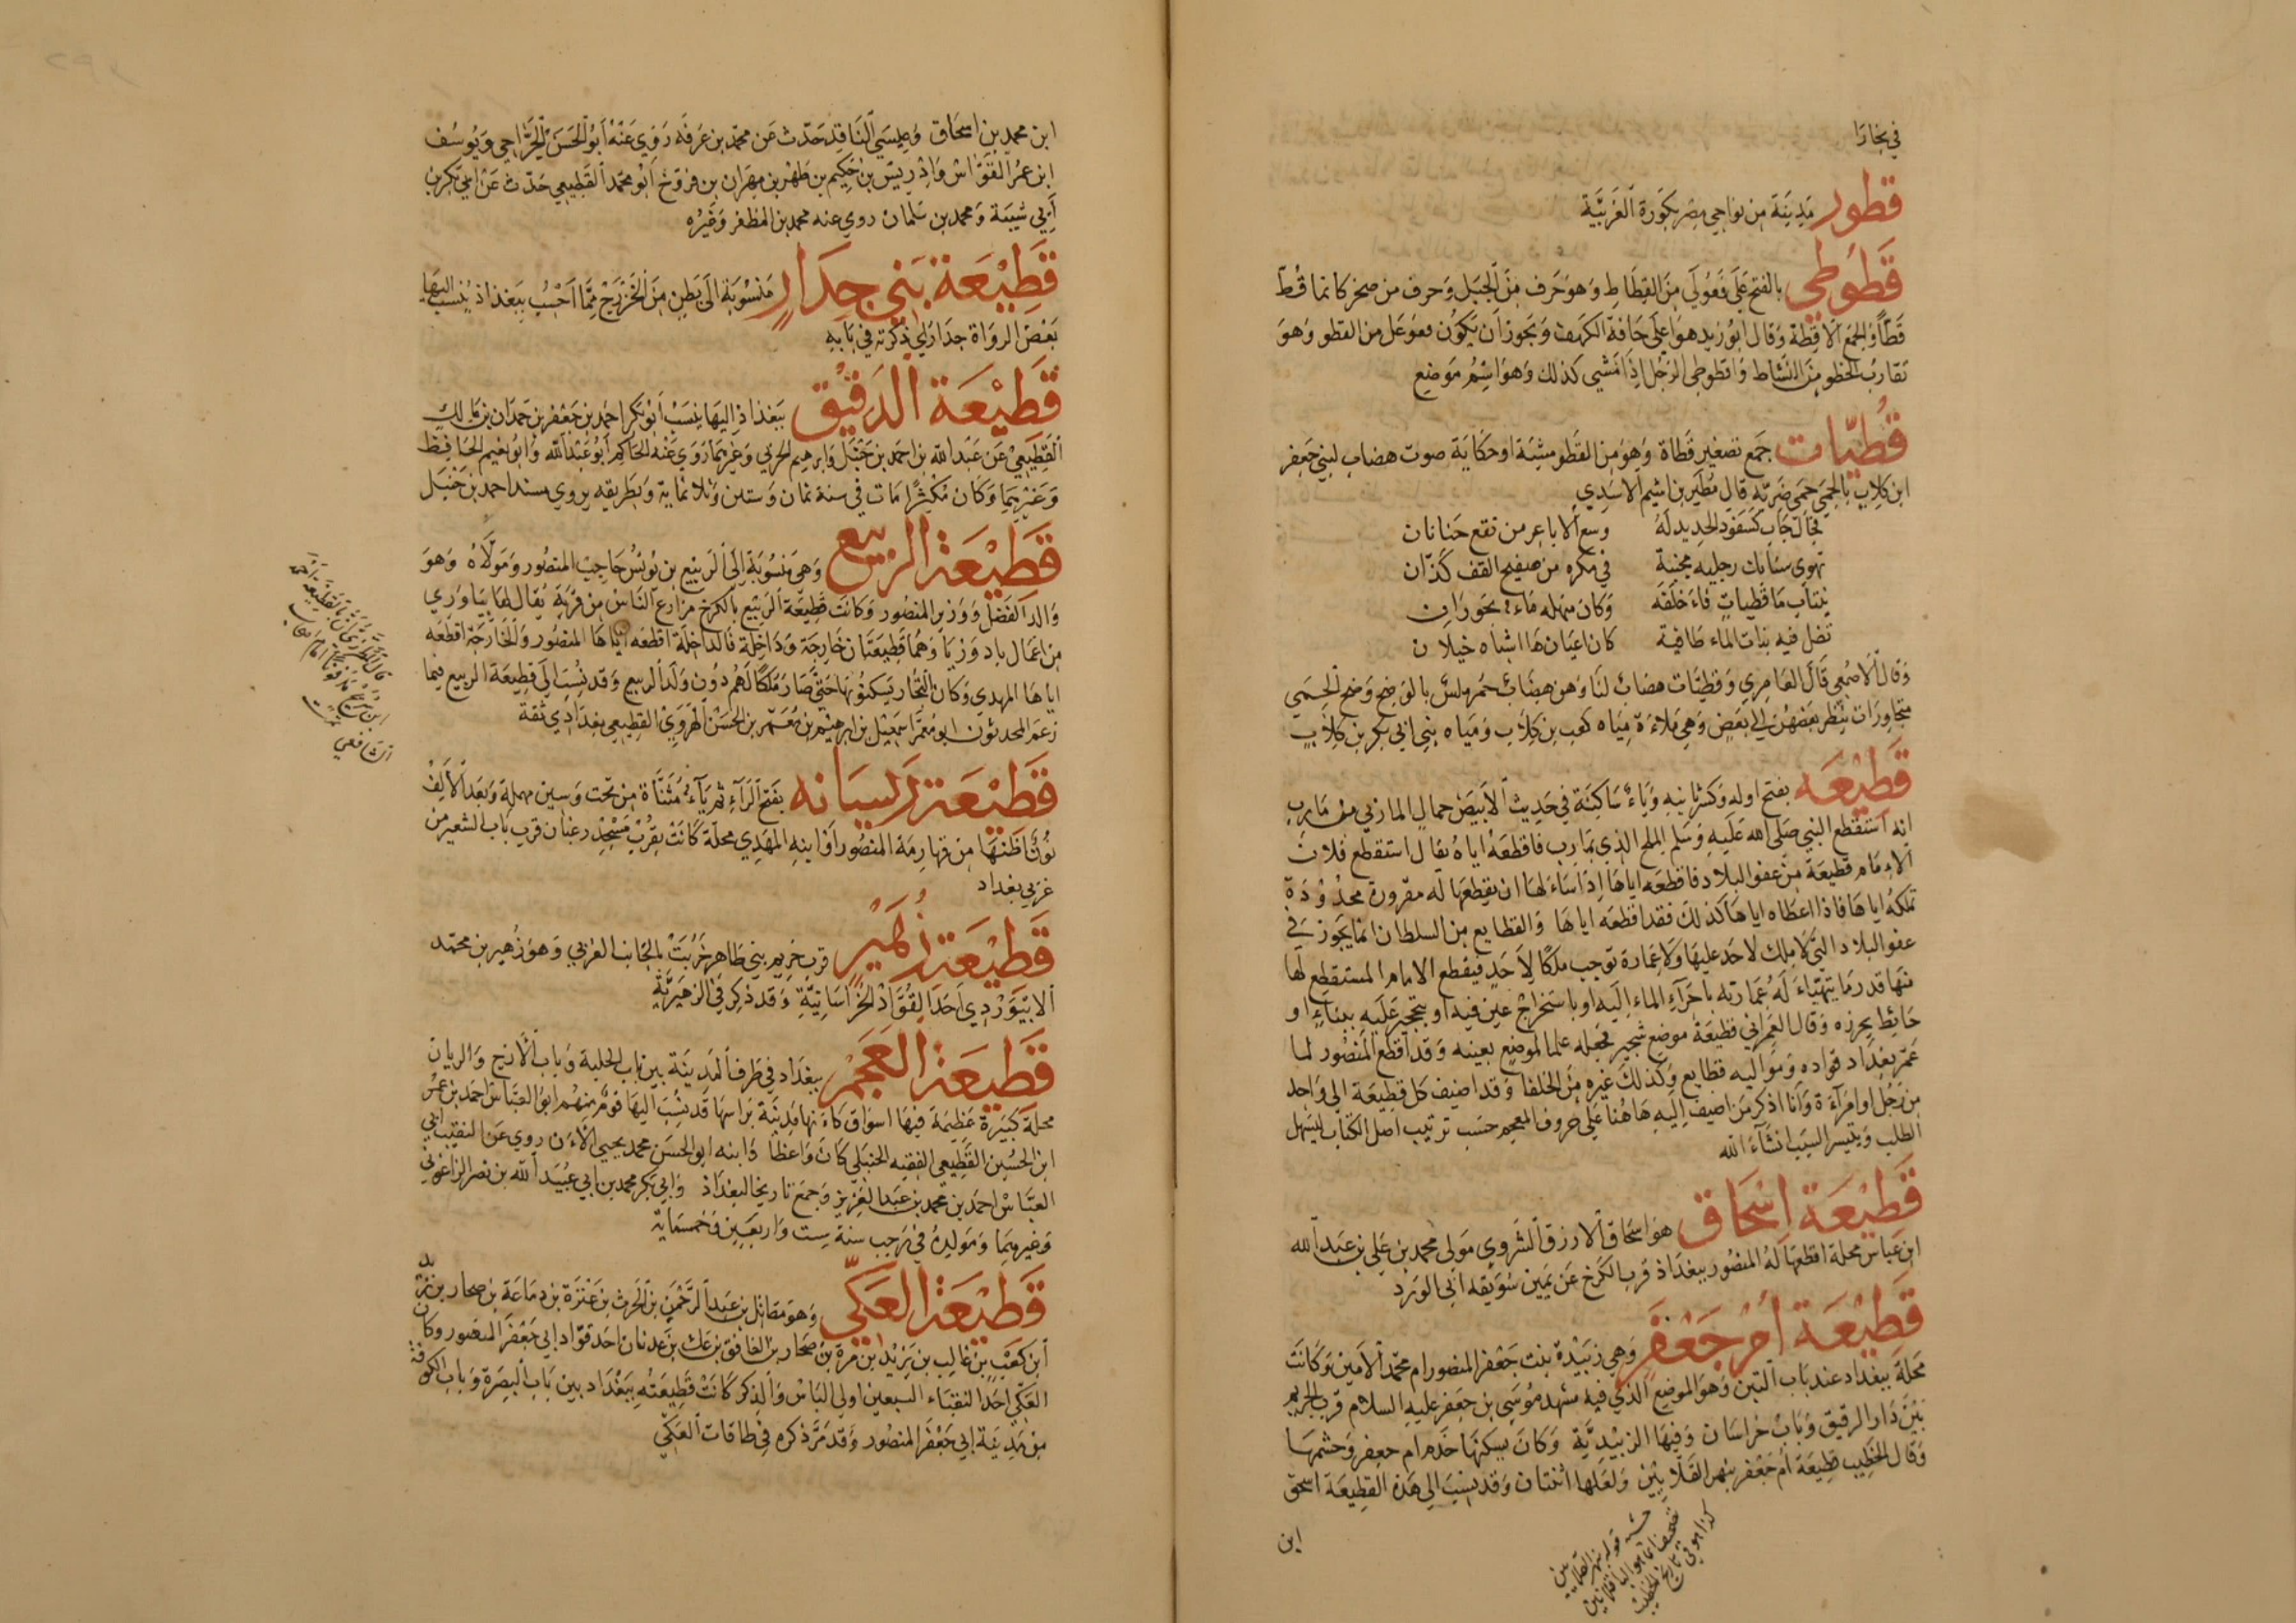 في بخارا
قطور مدينة من نواحي مصر بكورة الغربيّة
قَطَوطي بالفتح على فَعَوْلَي مِنَ القِطَاطِ وَهوَ حَرف مِنَ الجَبَل وَحرف من صخر كانما قُطّ
قَطّاً وَالجمَع الاقِطة وَقال ابُو زيد هوَ اعلَى حَافة الكهَف وَيَجوز أن يَكوُن فعَوعَل من القطو وَهوَ
تقارُب الخطو مِنَ النَشَاط وَاقطَوطى الرَجُل اذَا مَشي كذلك وَهوَ اسْمُ مَوضِع
قُطيّات جَمع تصغير قَطاة وَهِوَ من القَطو مشية او حكاية صوت هضاب لبني جَعفر
ابن كلاب بالحِمَي حِمَى ضَرِيّه قال مُطَير بن اشيم الاسَدي
فجال جَاب كسَفود الحَديد لَهُ وسع الاباعِر من نقع حَنانان
تهوي سنابك رجليه مجنبة في مكره من صفيح القف كَذّان
ينتاب مَا قطيات فاءَ خلفه وَكان منهله مَاءً بحَورَان
تضل فيه بنات الماء طافية كان اعيَانهَا اشبَاه خيلان
وَقال الاصمَعي قَال العَامِري وَقطيّات هضَاب لنَا وَهن هضَاب حُمر ملسٌ بالوَضِح وَضح الحِمَي
متجَاورَات ينظر بَعضهنّ الي بَعضٍ وَهِي مَلاءَة مِيَاه كَعب بن كِلاب وَميَاه بَنِي ابي بَكر بن كِلابٍ
قَطِيْعَه بفتح اوله وَكسر ثانيهِ وَيَاءٌ سَاكنَة في حَديث الأبيَض حمال المازني من مَارب
انه استقطع النبي صَلى الله عَلَيهِ وَسَلم الملح الذي بمَارب فاقطعَهُ اياهُ يقال استقطع فلان
الامَام قطيعَة مِن عفو البلاد فاقطعَه اياهَا اذَا سَاءَلهَا ان يقطعهَا له مفرورة محدُودَة
تملكهُ اياهَا فاذا اعطاه اياهَا كذلكَ فقد اقطعَه اياهَا وَالقطايع من السلطان انما يَجوز في
عفو البلاد التي لا ملك لاحَد عليهَا وَلا عِمَارة توجب ملكًا لاحَدٍ فيقطع الامام المستقطِع لهَا
منهَا قدر مَا يتهَياءَ لَهُ عمَارته باجرَاءِ الماءِ اليَهِ او باستخراج عَين فيهِ او بتجيرِ عَلَيهِ ببنَاءٍ او
حَائط يحرزه وَقال العِمرَاني قطيعَة موضع شجير فجَعله علما لموضع بعينه وَقد اقطع المنصُور لما
عَمّر بغدَاد قواده وَمَوَاليه قطايع وَكذلكَ غيره مِنَ الخلفا وَقد اضيف كل قطيعة الي وَاحد
من رَجُل او امرَاءَة وَأنا اذكر مَن اضيفَ اليَهِ هَاهُنا عَلَي حرُوف المعجم حَسَب ترتيب اصل الكتاب ليسهل
الطلب وَيتيسر السَبَب انشَاءَ الله
قَطِيْعَة اِسْحَاق هوَ اسحَاق الازرق الشَرَوي مَولى محمد بن عَلي بن عَبد الله
ابن عَباس محلة اقطعهَا لهُ المنصُور ببغدَاذ قرب الكَرخ عَن يَمين سُوَيقه ابَي الوَرد
قَطِيْعَة أُمّ جَعْفَر وَهي زبَيْدة بنت جَعْفر المنصُور ام محَمّد الامين وَكانَت
محَلة ببغداد عند بَاب التبن وَهوَ الموضع الذي فيه مشهد مُوسَى بن جَعفر عليهِ السلام قرب الحريم
بَيْنَ دَار الرقيق وَبَابْ خُراسَان وَفيهَا الزبيديَّة وَكانَ يسكنهَا خَدَم ام جعفر وَحشمهَا
وَقال الخَطِيب قطيعَة أم جَعفر بنهر القَلايِيْن وَلعَلها اثنتان وَقد يُنسَب الي هَذه القطيعَة اسحٰق
ابن
حشيه قوله نهر القلايين
تصحيف انما هو
كذا هو في تاريخ الخطيب
ابن محمد بن اسحَاق وَعيسَي النَاقِد حَدّث عَن محمّد بن عَرفَه رَوي عَنْهُ أبُو الحَسَن الجَرّاحِي وَيُوسُف
ابن عمُر القَوّاش وَادْريْس بن حَكيم بن طَهر بن مِهرَان بن فرّوخ ابَوُ محمّد القَطِيعي حَدّث عَن ابي بَكر بن
أَبِي شَيبَة وَمحمد بن سَلمان روي عنه محمد بن المظفر وَغيرُه
قَطِيْعَة بَنِي جِدَارٍ مَنسُوبَة الَى بَطن مِنَ الخَزرَج ممّا احْسِبُ ببَغداذ يُنسب اليهَا
بَعْضْ الروَاة جدَارَي ذكَرته في بَابهِ
قَطِيْعَة الدَقِيْق ببَغداذ اليهَا يُنسَبْ ابَوُ بَكر احَمد بن جَعْفر بن حَمدَان بن مَالك
القَطِيعِي عَن عَبدالله بن احمَد بن حَنبَل وَابرهيم الحَربي وَغيرهَما رَوي عَنهُ الحَاكم أبوُ عَبْدالله وَابوُ نعيم الحَافظ
وَغَيْرهِمَا وَكان مُكثِرًا مَات في سنة ثمان وَستين وَثلاثماية وَبطريقه يروي مسند احمد بن حَنْبَل
قَطِيْعَة الرَبيع وَهي مَنسُوبَة الَي الرَبيع بن يُونسُ حَاجبْ المنصُور وَمَولَاهُ وَهوَ
والد الفضل وَوَزير المنصُور وَكانتَ قطيعَة الرَبيع بالكرخ مزارع الناسْ من قريَة يُقال لهَا بيَاورِي
من اعمَال بادوريَا وَهمَا قَطِيعَتَان خَارجَة وَدَاخلَة فالداخلَة اقطعَه اياهَا المنصُور وَالخارَجة اقطعَه
اياهَا المهدي وَكان التجّار يَسكنُونهَا حَتي صَارَ مُلكًا لهَمُ دُونْ وَلد الربيع وَقد نُسِبَ الَي قطِيعَة الربيع فيما
زعم المحدثون ابو مُعمر اسمَعيل بن ابرهيْم بن مُعَمّر بن الحَسَن الهَرَوِيْ القطيعِي بغدَادِي ثقة
قَطِيْعَة رَيسَانه بفتح الرَآء ثم يَاءُ مُثنَّاة من تحت وَسين مهملة وَبَعد الالِف
نُون اظنهَا من قهارمَة المنصُور أوَ ابنهِ المَهدِي محلّة كَانَتْ بقُربْ مَسْجِدْ رعبَان قرب باب الشعير من
غربي بغداد
قَطِيْعَة زُهَيْر قرب حَريم بني طَاهر خَرُبَتْ بالجَانب الغَربي وَهوَ زُهير بن محمّد
الابْيَوَرْدِي احَد القُوّادْ الخُراسَانِيّةِ وَقد ذكِر في الزُهيريَّةِ
قَطِيعَة العَجَمْ ببغَدَاد في طَرف المَديْنَة بين باب الحلبة وَباب الازج وَالريان
محلة كبيرة عَظيمَة فيهَا اسوَاق كَاءَنهَا مَدِينَة برَاسهَا قد نُسِبَ اليَهَا قومٌ مِنهُم ابَوُ العبَّاس احمد بن عمُر
ابن الحُسَين القَطِيعي الفقيه الحَنبَلي كَانَ وَاعظا وَابنه ابو الحسَن محمد يحيي الآن روي عَن النقيب ابي
العبّاس احمَد بن محمد بن عَبد العَزيز وَجمعَ تاريخا لبغدَاذ وَابي بَكر محمد بن ابي عبُيَد الله بن نصر الزاغوني
وَغيرهِمَا وَمَولِدهُ في رَجِب سنة سِت وَاربعَيِن وَخَمسمَايَة
قَطِيْعَة العَكِّي وَهوَ مقاتل بن عَبدالرَحْمٰن بن الحَرث بن عَنتَرة بن دمَاعَة بن صحار بن زيد
أبن كعَبِ بن غالِب بن يَزِيْد ابن مُرة بن صحَار بن الغافق بن عَك بن عَدنان احَد قوّاد ابي جَعْفَر المنصُور وَكان
العكّي احَد النقبَاء السبعين اولي البَاسْ وَالذِكر كَانَتْ قَطِيعَتُهِ ببَغْدَاد بين بَاب البَصرَة وَباب الكوفة
من مَدِينة ابي جَعْفَر المنصُور وَقد مَرَّ ذكره في طاقات العَكّي
الشافعي